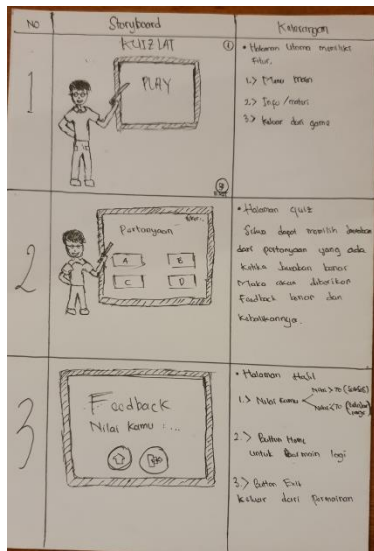 NO
Storyboard
Keterangan
1
KUIZLAT
i
PLAY
• Halaman Utama memiliki
Fitur.
1.> Menu main
2.> Info /materi
3.> keluar dari game
2
Pertanyaan
A
B
C
D
• Halaman quiz
Siswa dapat memilih Jawaban
dari pertanyaan yang ada
ketika Jawaban benar
Maka akan diberikan
Feedback benar dan
kebalikannya.
3
Feedback
Nilai Kamu : ...
• Halaman Hasil
1.> Nilai Kamu
2.> Button Home
untuk Bermain lagi
3.> Button Exit
keluar dari permainan